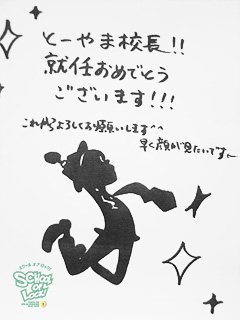 とーやま校長!!
就任おめでとう
ございます!!!
これからよろしくお願いします^^
早く顔が見たいです〜
SCHOOL
OF
LOCK!